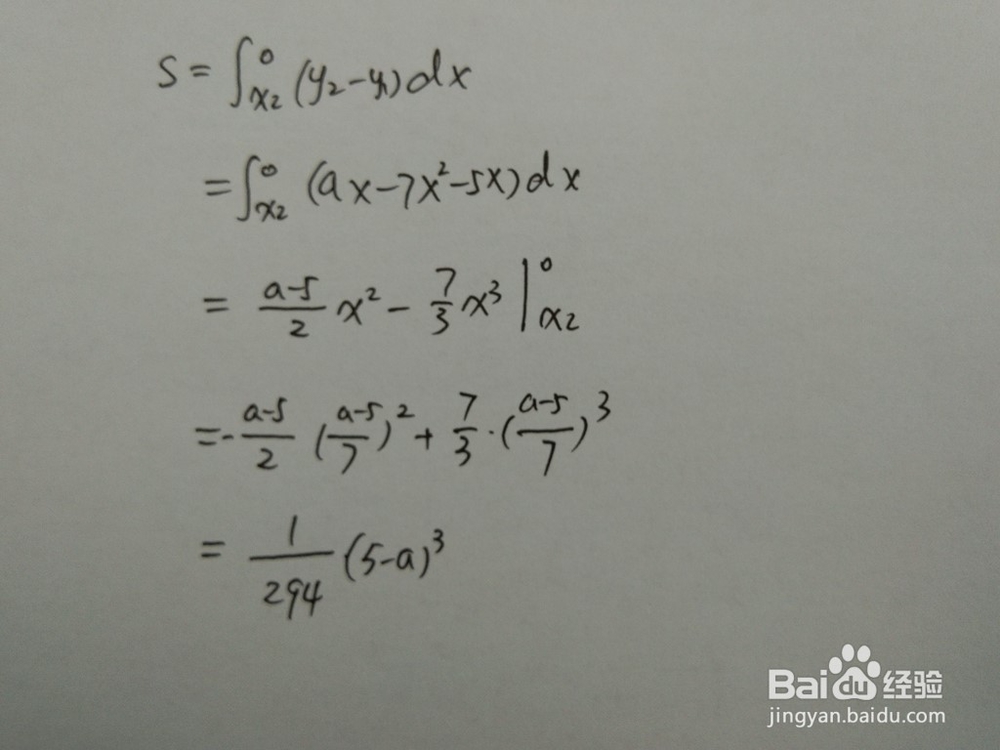 S = ∫_{x2}^{0} (y2-y1) dx
= ∫_{x2}^{0} (ax-7x²-5x) dx
= \frac{a-5}{2} x² - \frac{7}{3} x³ |_{x2}^{0}
= -\frac{a-5}{2} (\frac{a-5}{7})² + \frac{7}{3} · (\frac{a-5}{7})³
= \frac{1}{294} (5-a)³
Baidu经验
jingyan.baidu.com